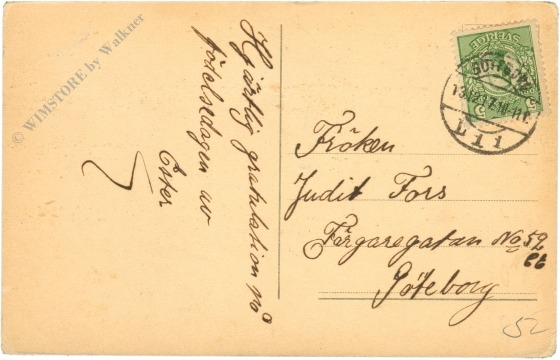 © WIMSTORE by Walkner
Hjärtlig gratulation på
födelsedagen av
Ester
SVERIGE
GÖTEBORG
L 1 1
Fröken
Judit Fors
Färgaregatan No 52
Göteborg
52